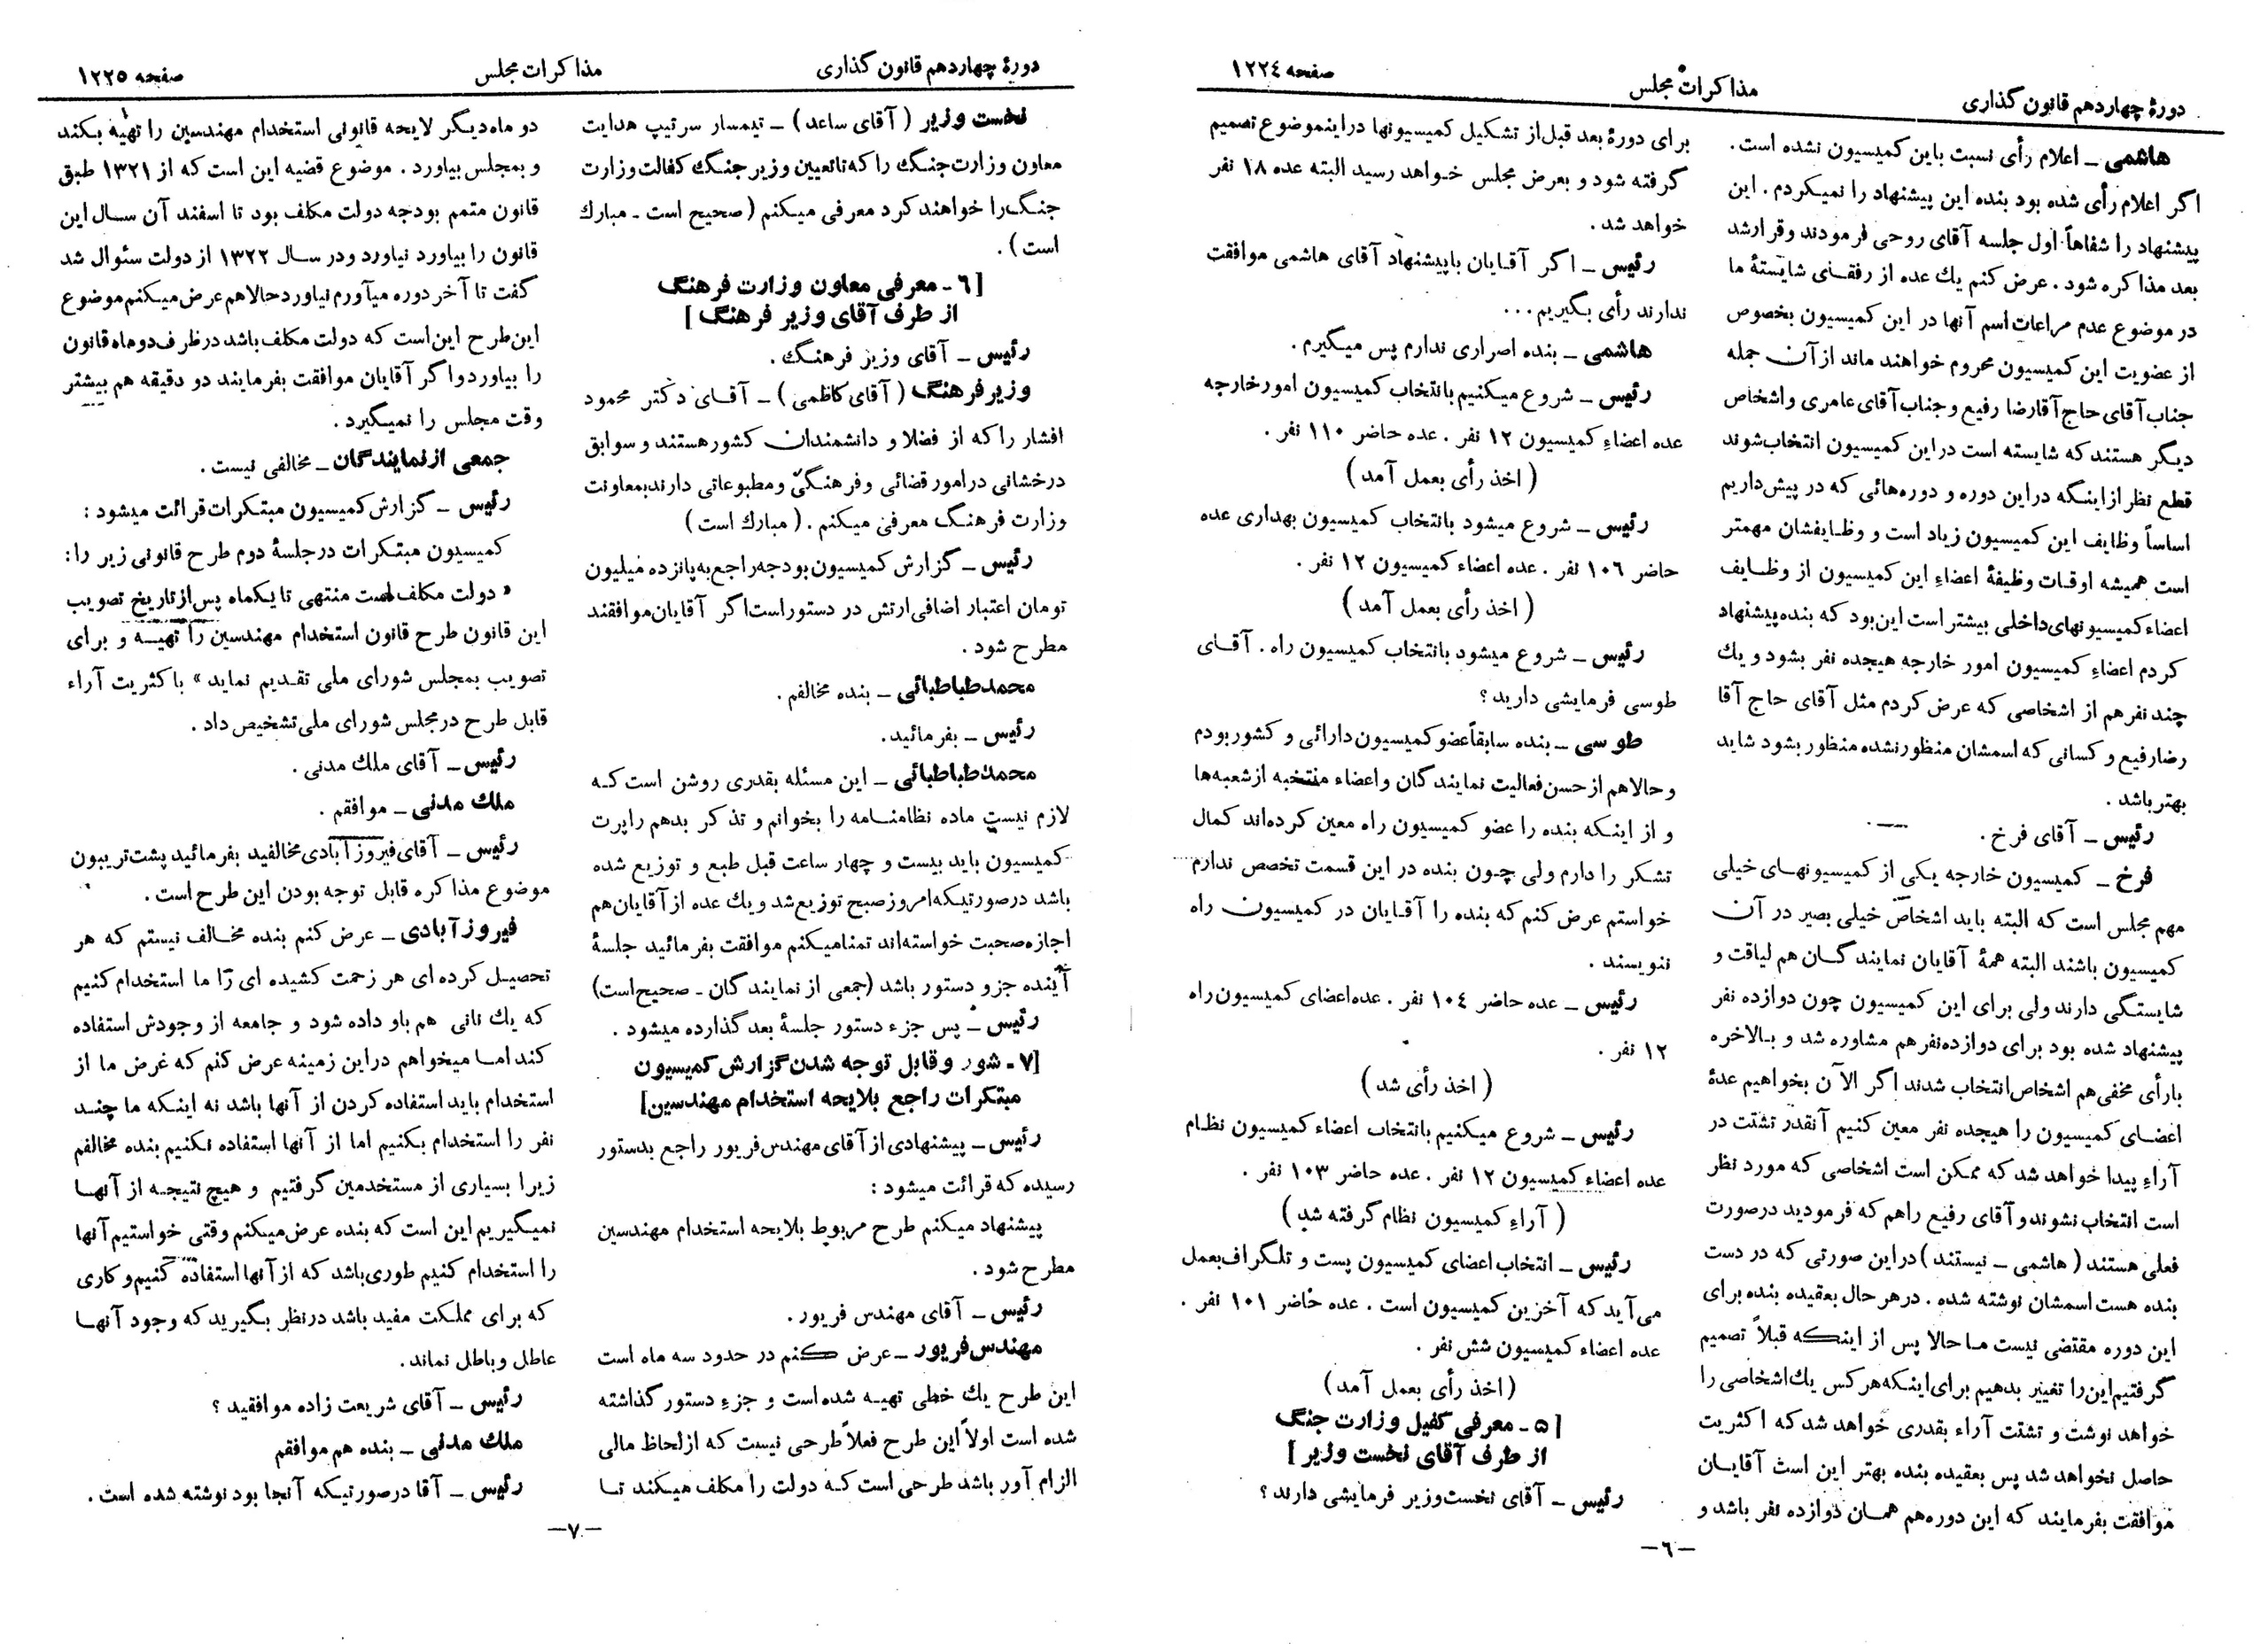 دورهٔ چهاردهم قانون گذاری
مذاکرات مجلس
صفحه ۱۲۲٤
هاشمی ـ اعلام رأی نسبت باین کمیسیون نشده است.
اگر اعلام رأی شده بود بنده این پیشنهاد را نمیکردم. این
پیشنهاد را شفاهاً اول جلسه آقای روحی فرمودند وقرارشد
بعد مذاکره شود. عرض کنم یك عده از رفقای شایستهٔ ما
در موضوع عدم مراعات اسم آنها در این کمیسیون بخصوص
از عضویت این کمیسیون محروم خواهند ماند از آن جمله
جناب آقای حاج آقارضا رفیع و جناب آقای عامری و اشخاص
دیگر هستند که شایسته است در این کمیسیون انتخاب شوند
قطع نظر از اینکه در این دوره و دوره‌هائی که در پیش داریم
اساساً وظایف این کمیسیون زیاد است و وظایفشان مهمتر
است همیشه اوقات وظیفهٔ اعضاء این کمیسیون از وظایف
اعضاء کمیسیونهای داخلی بیشتر است این بود که بنده پیشنهاد
کردم اعضاء کمیسیون امور خارجه هیجده نفر بشود و یك
چند نفر هم از اشخاصی که عرض کردم مثل آقای حاج آقا
رضا رفیع و کسانی که اسمشان منظور نشده منظور بشود شاید
بهتر باشد.
رئیس ـ آقای فرخ.
فرخ ـ کمیسیون خارجه یکی از کمیسیونهای خیلی
مهم مجلس است که البته باید اشخاص خیلی بصیر در آن
کمیسیون باشند البته همهٔ آقایان نمایندگان هم لیاقت و
شایستگی دارند ولی برای این کمیسیون چون دوازده نفر
پیشنهاد شده بود برای دوازده نفر هم مشاوره شد و بالاخره
با رأی مخفی هم اشخاص انتخاب شدند اگر الآن بخواهیم عدهٔ
اعضای کمیسیون را هیجده نفر معین کنیم آنقدر تشتت در
آراء پیدا خواهد شد که ممکن است اشخاصی که مورد نظر
است انتخاب نشوند و آقای رفیع راهم که فرمودید در صورت
فعلی هستند (هاشمی ـ نیستند) در این صورتی که در دست
بنده هست اسمشان نوشته شده. در هر حال بعقیده بنده برای
این دوره مقتضی نیست ما حالا پس از اینکه قبلاً تصمیم
گرفتیم این را تغییر بدهیم برای اینکه هر کس یك اشخاصی را
خواهد نوشت و تشتت آراء بقدری خواهد شد که اکثریت
حاصل نخواهد شد پس بعقیده بنده بهتر این است آقایان
موافقت بفرمایند که این دوره هم همان دوازده نفر باشد و
برای دورهٔ بعد قبل از تشکیل کمیسیونها در اینموضوع تصمیم
گرفته شود و بعرض مجلس خواهد رسید البته عده ۱۸ نفر
خواهد شد.
رئیس ـ اگر آقایان با پیشنهاد آقای هاشمی موافقت
ندارند رأی بگیریم...
هاشمی ـ بنده اصراری ندارم پس میگیرم.
رئیس ـ شروع میکنیم بانتخاب کمیسیون امور خارجه
عده اعضاء کمیسیون ۱۲ نفر. عده حاضر ۱۱۰ نفر.
(اخذ رأی بعمل آمد)
رئیس ـ شروع میشود بانتخاب کمیسیون بهداری عده
حاضر ۱۰٦ نفر. عده اعضاء کمیسیون ۱۲ نفر.
(اخذ رأی بعمل آمد)
رئیس ـ شروع میشود بانتخاب کمیسیون راه. آقای
طوسی فرمایشی دارید؟
طوسی ـ بنده سابقاً عضو کمیسیون دارائی و کشور بودم
و حالا هم از حسن فعالیت نمایندگان و اعضاء منتخبه از شعبه‌ها
و از اینکه بنده را عضو کمیسیون راه معین کرده‌اند کمال
تشکر را دارم ولی چون بنده در این قسمت تخصص ندارم
خواستم عرض کنم که بنده را آقایان در کمیسیون راه
ننویسند.
رئیس ـ عده حاضر ۱۰٤ نفر. عده اعضای کمیسیون راه
۱۲ نفر.
(اخذ رأی شد)
رئیس ـ شروع میکنیم بانتخاب اعضاء کمیسیون نظام
عده اعضاء کمیسیون ۱۲ نفر. عده حاضر ۱۰۳ نفر.
(آراء کمیسیون نظام گرفته شد)
رئیس ـ انتخاب اعضای کمیسیون پست و تلگراف بعمل
می‌آید که آخرین کمیسیون است. عده حاضر ۱۰۱ نفر.
عده اعضاء کمیسیون شش نفر.
(اخذ رأی بعمل آمد)
[۵ ـ معرفی کفیل وزارت جنگ
از طرف آقای نخست وزیر]
رئیس ـ آقای نخست وزیر فرمایشی دارند؟
—٦—
دورهٔ چهاردهم قانون گذاری
مذاکرات مجلس
صفحه ۱۲۲۵
نخست وزیر (آقای ساعد) ـ تیمسار سرتیپ هدایت
معاون وزارت جنگ را که تا تعیین وزیر جنگ کفالت وزارت
جنگ را خواهند کرد معرفی میکنم (صحیح است ـ مبارك
است).
[٦ ـ معرفی معاون وزارت فرهنگ
از طرف آقای وزیر فرهنگ]
رئیس ـ آقای وزیر فرهنگ.
وزیر فرهنگ (آقای کاظمی) ـ آقای دکتر محمود
افشار را که از فضلا و دانشمندان کشور هستند و سوابق
درخشانی در امور قضائی و فرهنگی و مطبوعاتی دارند بمعاونت
وزارت فرهنگ معرفی میکنم. (مبارك است)
رئیس ـ گزارش کمیسیون بودجه راجع به پانزده میلیون
تومان اعتبار اضافی ارتش در دستور است اگر آقایان موافقند
مطرح شود.
محمد طباطبائی ـ بنده مخالفم.
رئیس ـ بفرمائید.
محمد طباطبائی ـ این مسئله بقدری روشن است که
لازم نیست ماده نظامنامه را بخوانم و تذکر بدهم راپرت
کمیسیون باید بیست و چهار ساعت قبل طبع و توزیع شده
باشد در صورتیکه امروز صبح توزیع شد و یك عده از آقایان هم
اجازه صحبت خواسته‌اند تمنا میکنم موافقت بفرمائید جلسهٔ
آینده جزو دستور باشد (جمعی از نمایندگان ـ صحیح است)
رئیس ـ پس جزء دستور جلسهٔ بعد گذارده میشود.
[۷ ـ شور و قابل توجه شدن گزارش کمیسیون
مبتکرات راجع بلایحه استخدام مهندسین]
رئیس ـ پیشنهادی از آقای مهندس فریور راجع بدستور
رسیده که قرائت میشود:
پیشنهاد میکنم طرح مربوط بلایحه استخدام مهندسین
مطرح شود.
رئیس ـ آقای مهندس فریور.
مهندس فریور ـ عرض کنم در حدود سه ماه است
این طرح یك خطی تهیه شده است و جزء دستور گذاشته
شده است اولاً این طرح فعلاً طرحی نیست که از لحاظ مالی
الزام آور باشد طرحی است که دولت را مکلف میکند تا
دو ماه دیگر لایحه قانونی استخدام مهندسین را تهیه بکند
و بمجلس بیاورد. موضوع قضیه این است که از ۱۳۲۱ طبق
قانون متمم بودجه دولت مکلف بود تا اسفند آن سال این
قانون را بیاورد نیاورد و در سال ۱۳۲۲ از دولت سئوال شد
گفت تا آخر دوره میآورم نیاورد حالا هم عرض میکنم موضوع
این طرح این است که دولت مکلف باشد در ظرف دو ماه قانون
را بیاورد و اگر آقایان موافقت بفرمایند دو دقیقه هم بیشتر
وقت مجلس را نمیگیرد.
جمعی از نمایندگان ـ مخالفی نیست.
رئیس ـ گزارش کمیسیون مبتکرات قرائت میشود:
کمیسیون مبتکرات در جلسهٔ دوم طرح قانونی زیر را:
« دولت مکلف است منتهی تا یکماه پس از تاریخ تصویب
این قانون طرح قانون استخدام مهندسین را تهیه و برای
تصویب بمجلس شورای ملی تقدیم نماید » با کثریت آراء
قابل طرح در مجلس شورای ملی تشخیص داد.
رئیس ـ آقای ملك مدنی.
ملك مدنی ـ موافقم.
رئیس ـ آقای فیروزآبادی مخالفید بفرمائید پشت تریبون
موضوع مذاکره قابل توجه بودن این طرح است.
فیروزآبادی ـ عرض کنم بنده مخالف نیستم که هر
تحصیل کرده ای هر زحمت کشیده ای را ما استخدام کنیم
که یك نانی هم باو داده شود و جامعه از وجودش استفاده
کند اما میخواهم در این زمینه عرض کنم که غرض ما از
استخدام باید استفاده کردن از آنها باشد نه اینکه ما چند
نفر را استخدام بکنیم اما از آنها استفاده نکنیم بنده مخالفم
زیرا بسیاری از مستخدمین گرفتیم و هیچ نتیجه از آنها
نمیگیریم این است که بنده عرض میکنم وقتی خواستیم آنها
را استخدام کنیم طوری باشد که از آنها استفاده کنیم و کاری
که برای مملکت مفید باشد در نظر بگیرید که وجود آنها
عاطل و باطل نماند.
رئیس ـ آقای شریعت زاده موافقید؟
ملك مدنی ـ بنده هم موافقم
رئیس ـ آقا در صورتیکه آنجا بود نوشته شده است.
—۷—